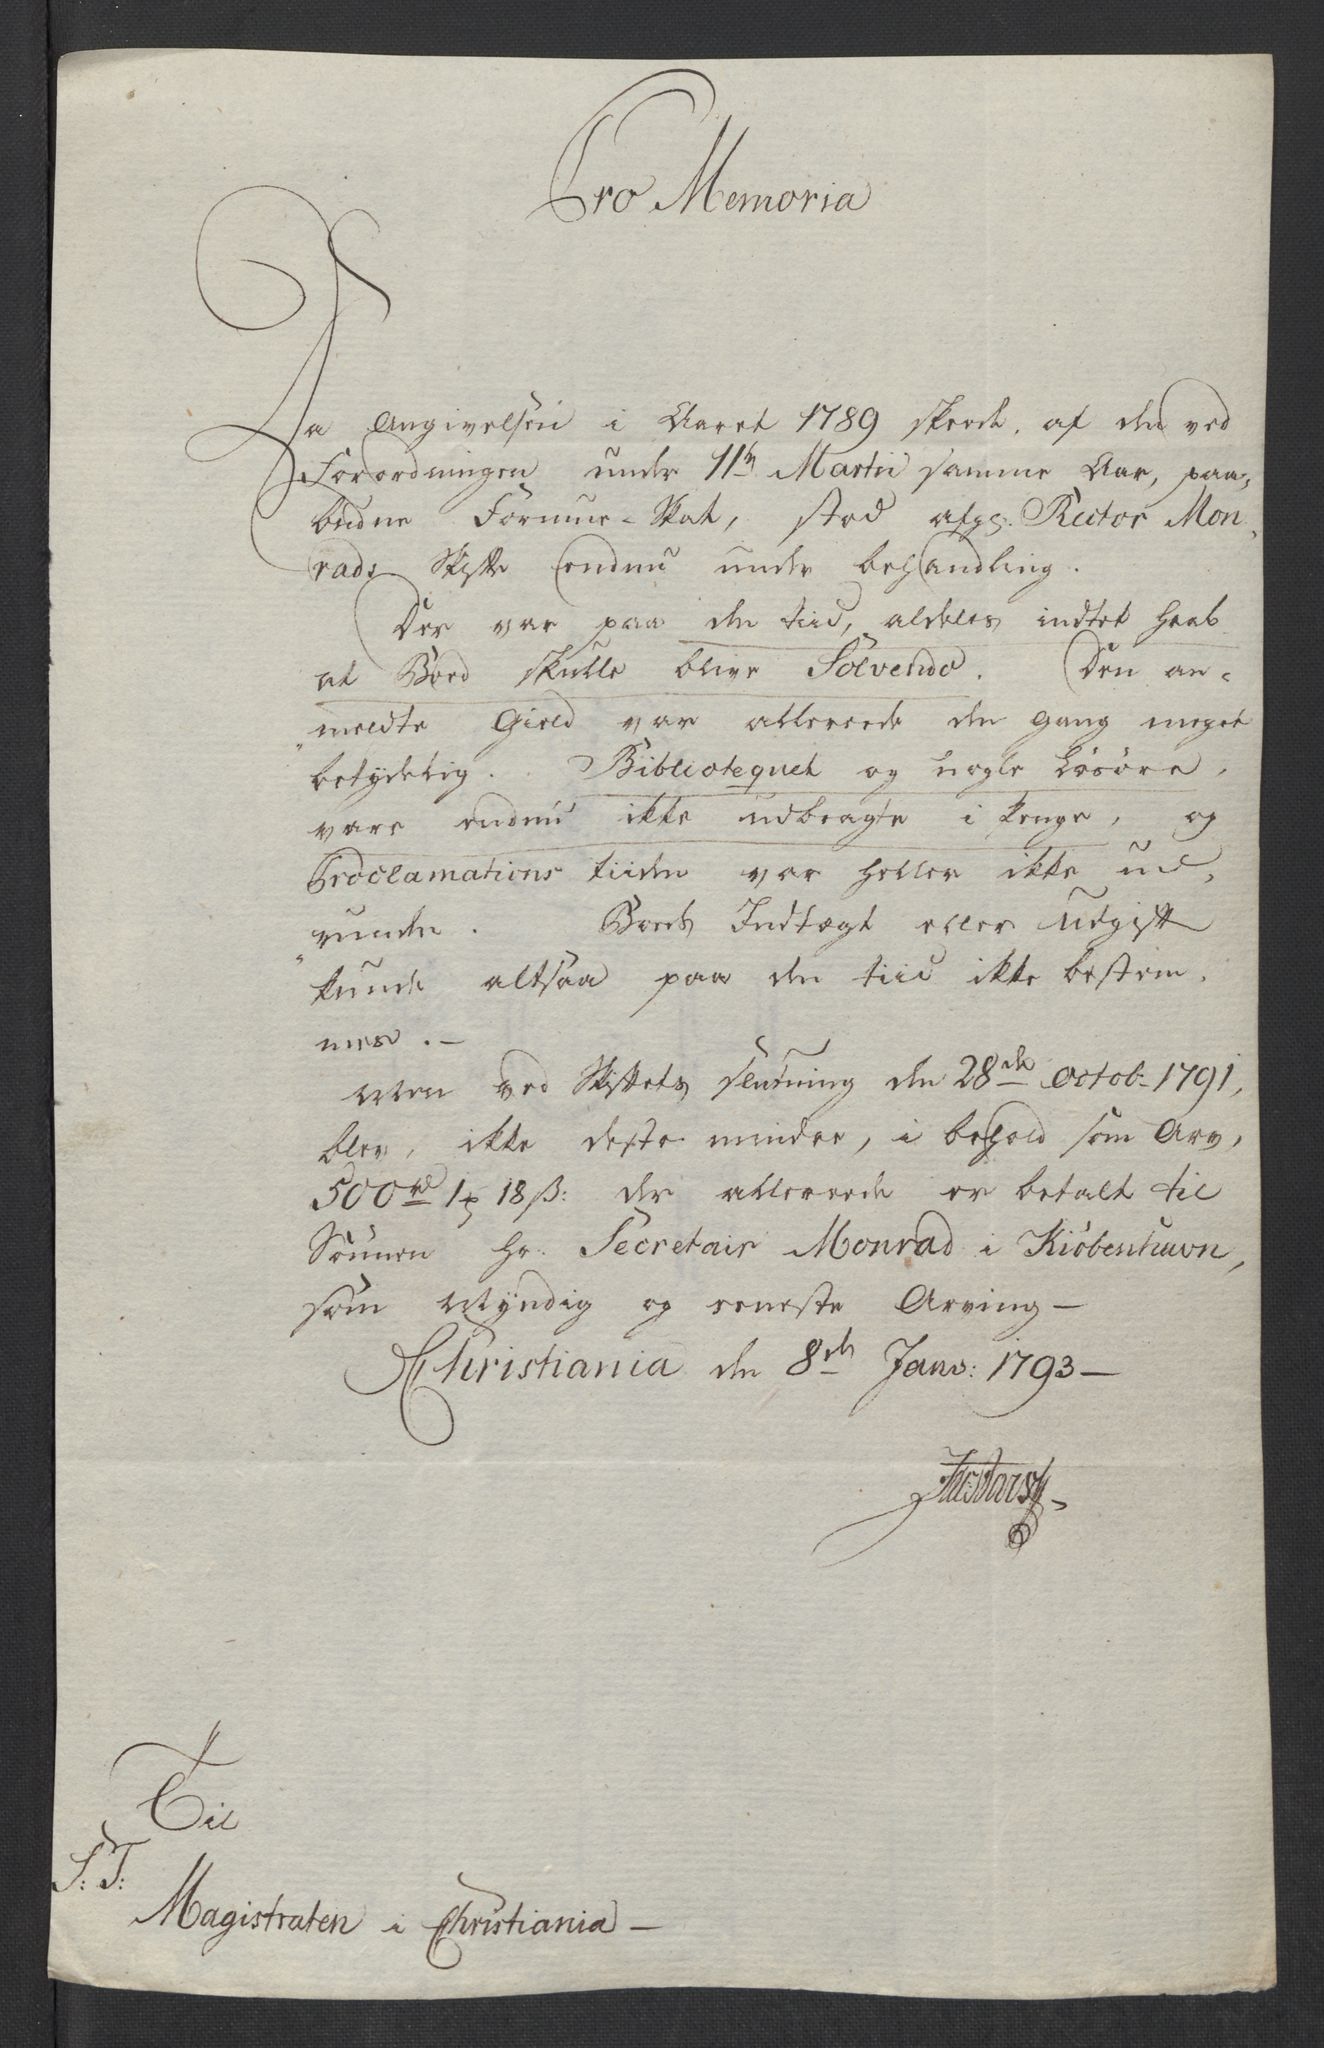 Pro Memoria
Da Angivelsen i Aaret 1789 skeede, af den ved
Forordningen under 11te Martii samme Aar, paa,
budne Formue-Skat, stod afgs. Rector Mon,
rads Skifte endnu under behandling.
Der var paa den tiid, aldeles indtet Haab
at Boed skulle blive Solvendo. Den an-
meldte Gield var allereede den gang meget
betydelig. Bibliotequet og nogle Løsøre,
vare endnu ikke udbragte i Penge, og
Proclamations tiiden var heller ikke ud,
runden. Boets Indtægt eller Udgift
kunde altsaa paa den tiid ikke bestem,
mes.-
Men ved Skiftets slutning den 28de Octob- 1791,
blev, ikke desto mindre, i behold som Arv,
500rd 1 18ß: der allereede er betalt til
Sønnen Hr. Secretair Monrad i Kiöbenhavn,
som Myndig og eeneste Arving-
Christiania den 8de Janv: 1793-
Til
S: T:
Magistraten i Christiania-